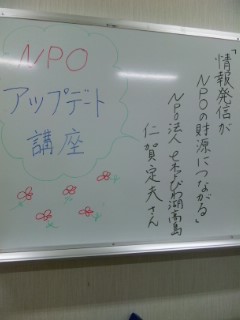 NPO
アップデート
講座
「情報発信が
NPOの財源につながる」
NPO法人 びわ湖高島
仁賀定夫さん